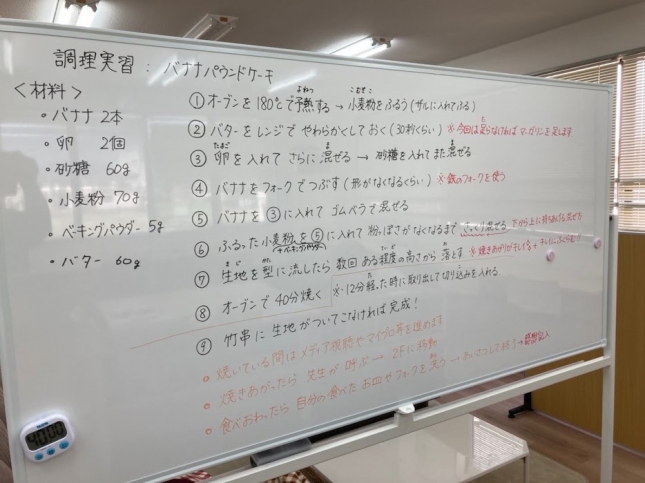 調理実習：バナナパウンドケーキ
<材料>
・バナナ 2本
・卵 2個
・砂糖 60g
・小麦粉 70g
・ベーキングパウダー 5g
・バター 60g
① オーブンを180℃で予熱する → 小麦粉をふるう(ザルに入れてふる)
よねつ
こむぎこ
② バターをレンジでやわらかくしておく(30秒くらい) ※今回は足らなければマーガリンを足します
③ 卵を入れてさらに混ぜる → 砂糖を入れてまた混ぜる
たまご
④ バナナをフォークでつぶす(形がなくなるくらい) ※鉄のフォークを使う
⑤ バナナを③に入れてゴムベラで混ぜる
⑥ ふるった小麦粉を⑤に入れて粉っぽさがなくなるまでさっくり混ぜる 下から上に持ちあげる混ぜ方
+ベーキングパウダー
⑦ 生地を型に流したら数回ある程度の高さから落とす ※焼きあがりがキレイ
⑧ オーブンで40分焼く ※12分経った時に取り出して切り込みを入れる
⑨ 竹串に生地がついてこなければ完成!
○ 焼いている間はメディア視聴やマイプロ等を進めます
○ 焼きあがったら先生が呼ぶ → 2Fに移動
○ 食べおわったら自分の食べたお皿やフォークを洗う → あいさつして終了
4000